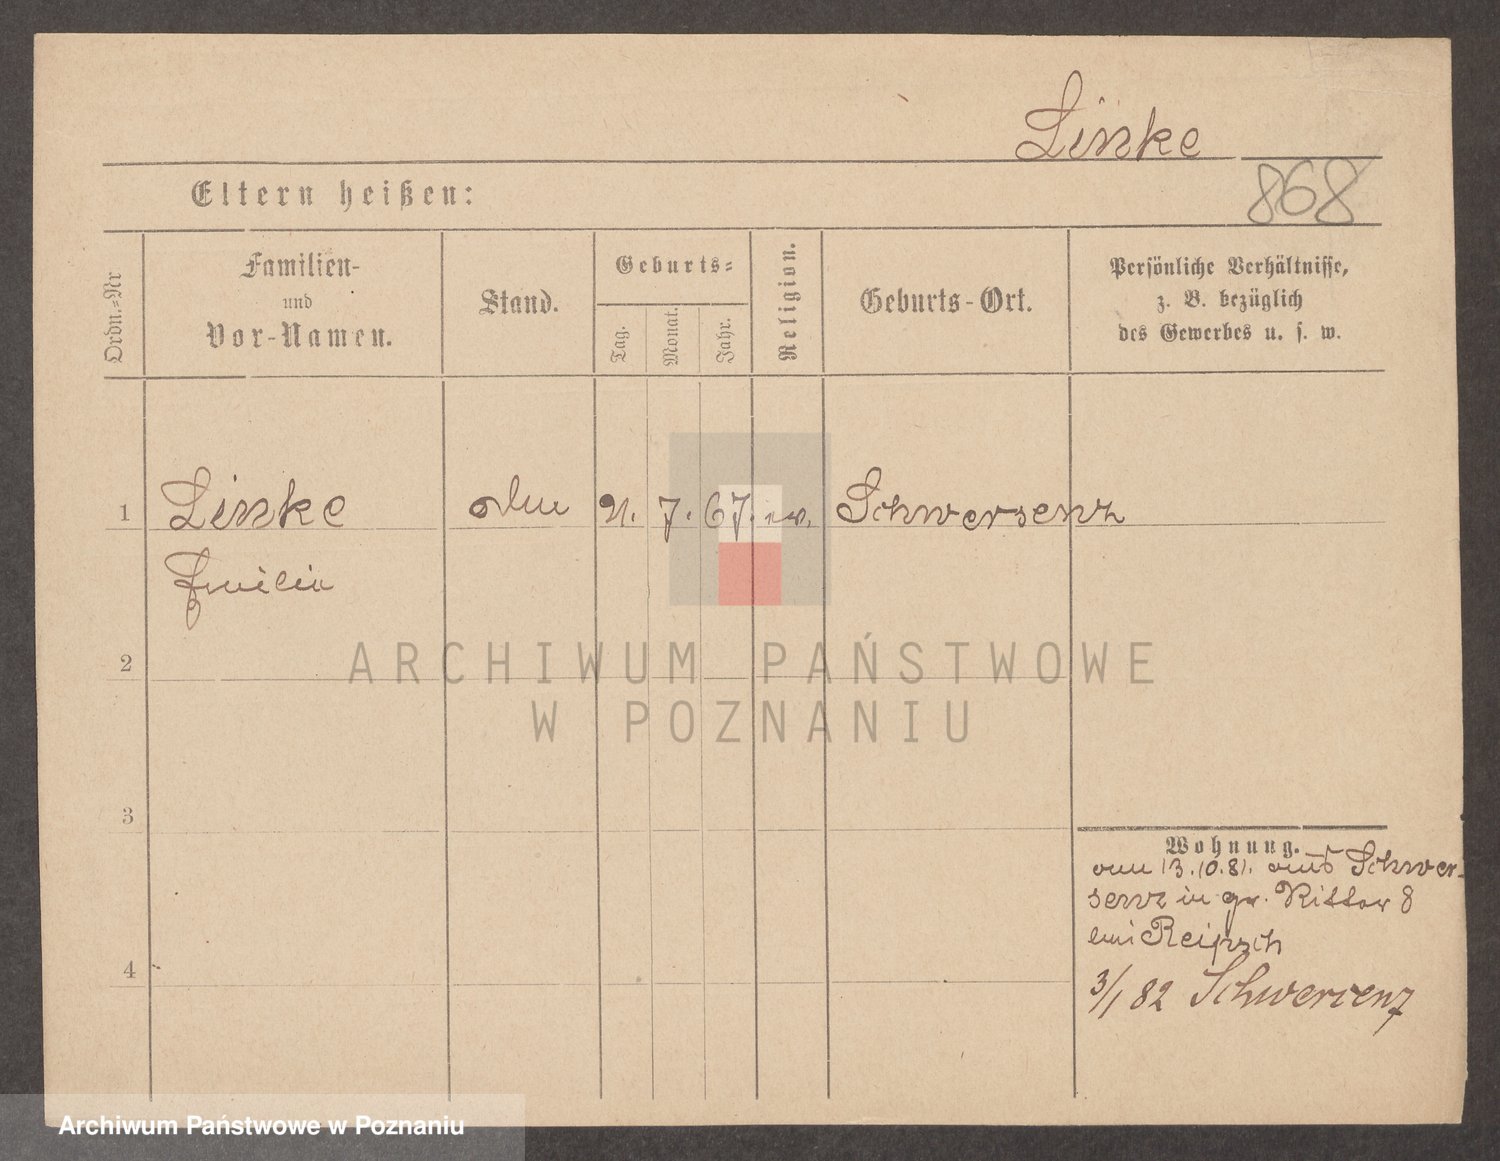 Linke
868
Eltern heißen:
Ordn.=Nr
Familien-
und
Vor-Namen.
Stand.
Geburts=
Tag.
Monat.
Jahr.
Religion.
Geburts-Ort.
Persönliche Verhältnisse,
z. B. bezüglich
des Gewerbes u. s. w.
1 Linke 7. 67. ev. Schwersenz
Emilie
2
3
4
Wohnung.
vom 13.10.81. aus Schwer-
senz in gr. Ritter 8
bei
3/1 82 Schwersenz
ARCHIWUM PAŃSTWOWE
W POZNANIU
Archiwum Państwowe w Poznaniu